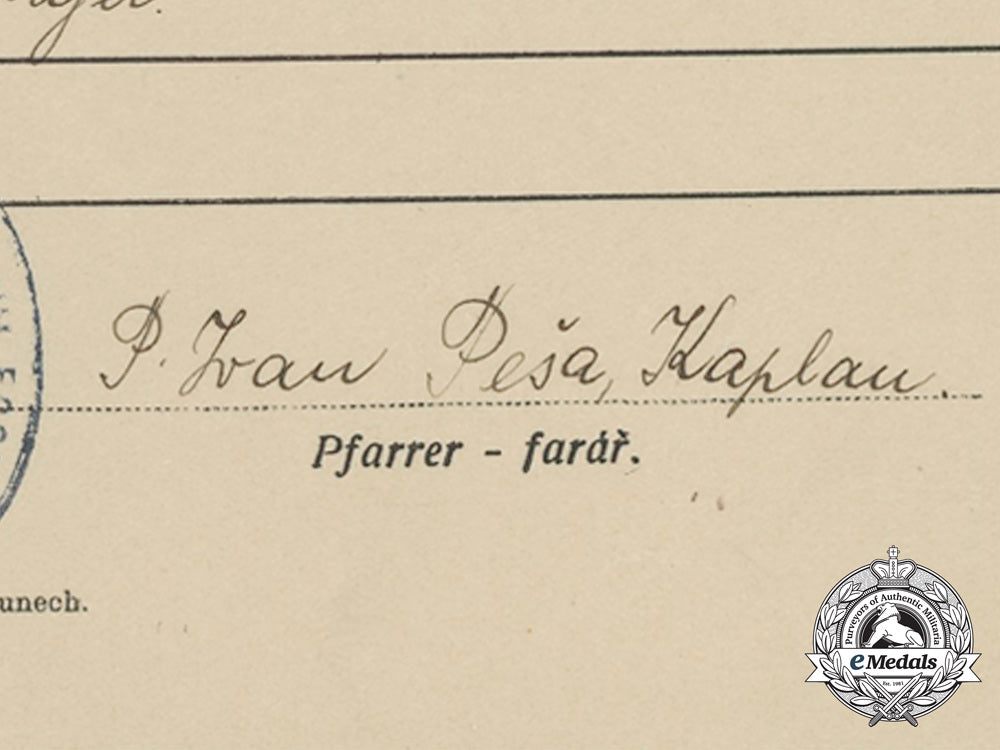 P. Ivan Peša, Kaplan.
Pfarrer - farář.
unech.
Purveyors of Authentic Militaria
eMedals
Est. 1981